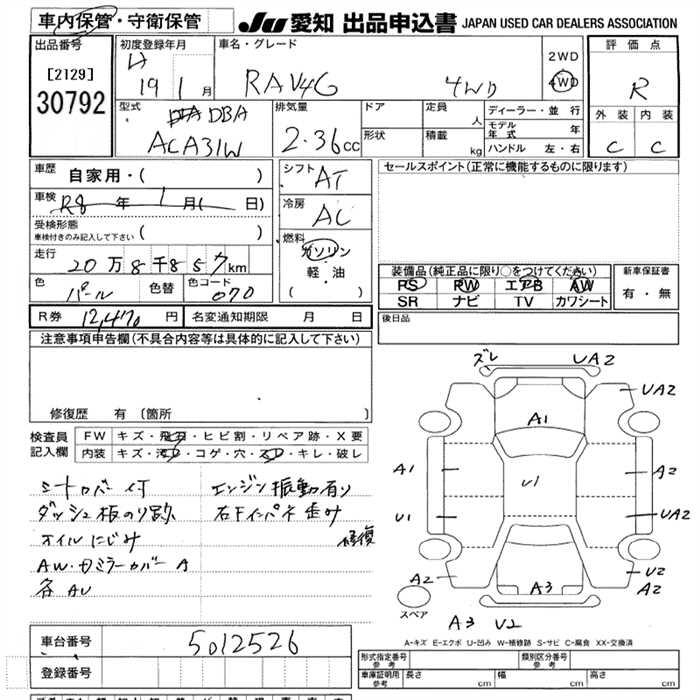 車内保管・守衛保管
JU 愛知 出品申込書 JAPAN USED CAR DEALERS ASSOCIATION
出品番号
[2129]
30792
初度登録年月
H
19 1 月
車名・グレード
RAV4G 4WD
2WD
4WD
評価点
R
外装 内装
C C
型式
DBA
ACA31W
排気量
2.36cc
ドア
形状
定員
人
積載
kg
ディーラー・並行
モデル年式 年
ハンドル 左・右
車歴
自家用・( )
車検
R8 年 1 月( 日)
受検形態
車検付きのみ記入して下さい ( )
走行
20 万 8 千 8 5 7 km
色
パール
色替
色コード
070
シフト
AT
冷房
AC
燃料
ガソリン
軽・油
( )
セールスポイント(正常に機能するものに限ります)
装備品(純正品に限り○をつけてください)
PS PW エアB AW
SR ナビ TV カワシート
新車保証書
有・無
R券 12,470 円
名変通知期限 月 日
後日品
注意事項申告欄(不具合内容等は具体的に記入して下さい)
修復歴 有 〔箇所 〕
検査員記入欄
FW キズ・飛石・ヒビ割・リペア跡・X要
内装 キズ・汚レ・コゲ・穴・スレ・キレ・破レ
シートカバー付
ダッシュ板のり跡
オイルにじみ
AW・ミラーカバーA
各AU
エンジン振動有り
右下インパネ歪み
修復
ズレ UA2
UA2
A1
A1
A2
U1
U1
UA2
A2
U2
A2
A3
A3 U2
スペア
A-キズ E-エクボ U-凹み W-補修跡 S-サビ C-腐食 XX-交換済
車台番号
5012526
登録番号
形式指定番号
参考
類別区分番号
参考
車庫証明用
参考
長さ cm
幅 cm
高さ cm